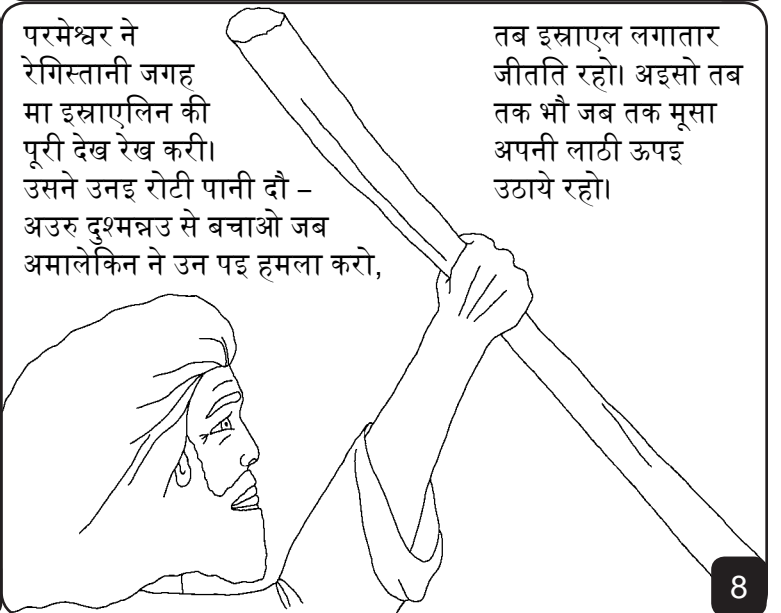 परमेश्वर ने
रेगिस्तानी जगह
मा इस्राएलिन की
पूरी देख रेख करी।
उसने उनइ रोटी पानी दौ –
अउरु दुश्मन्नउ से बचाओ जब
अमालेकिन ने उन पइ हमला करो,
तब इस्राएल लगातार
जीतति रहो। अइसो तब
तक भौ जब तक मूसा
अपनी लाठी ऊपइ
उठाये रहो।
8